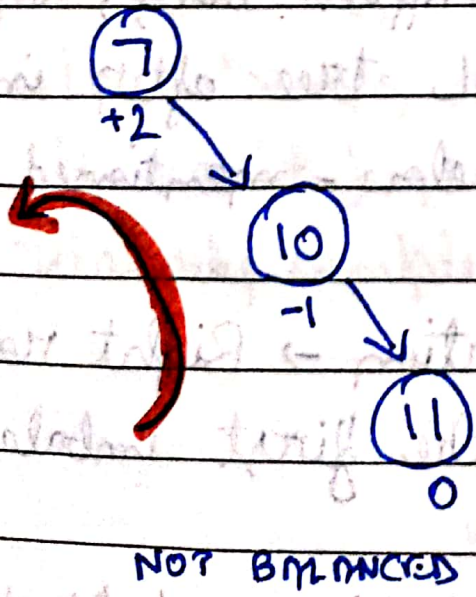 7
+2
10
-1
11
0
NOT BALANCED